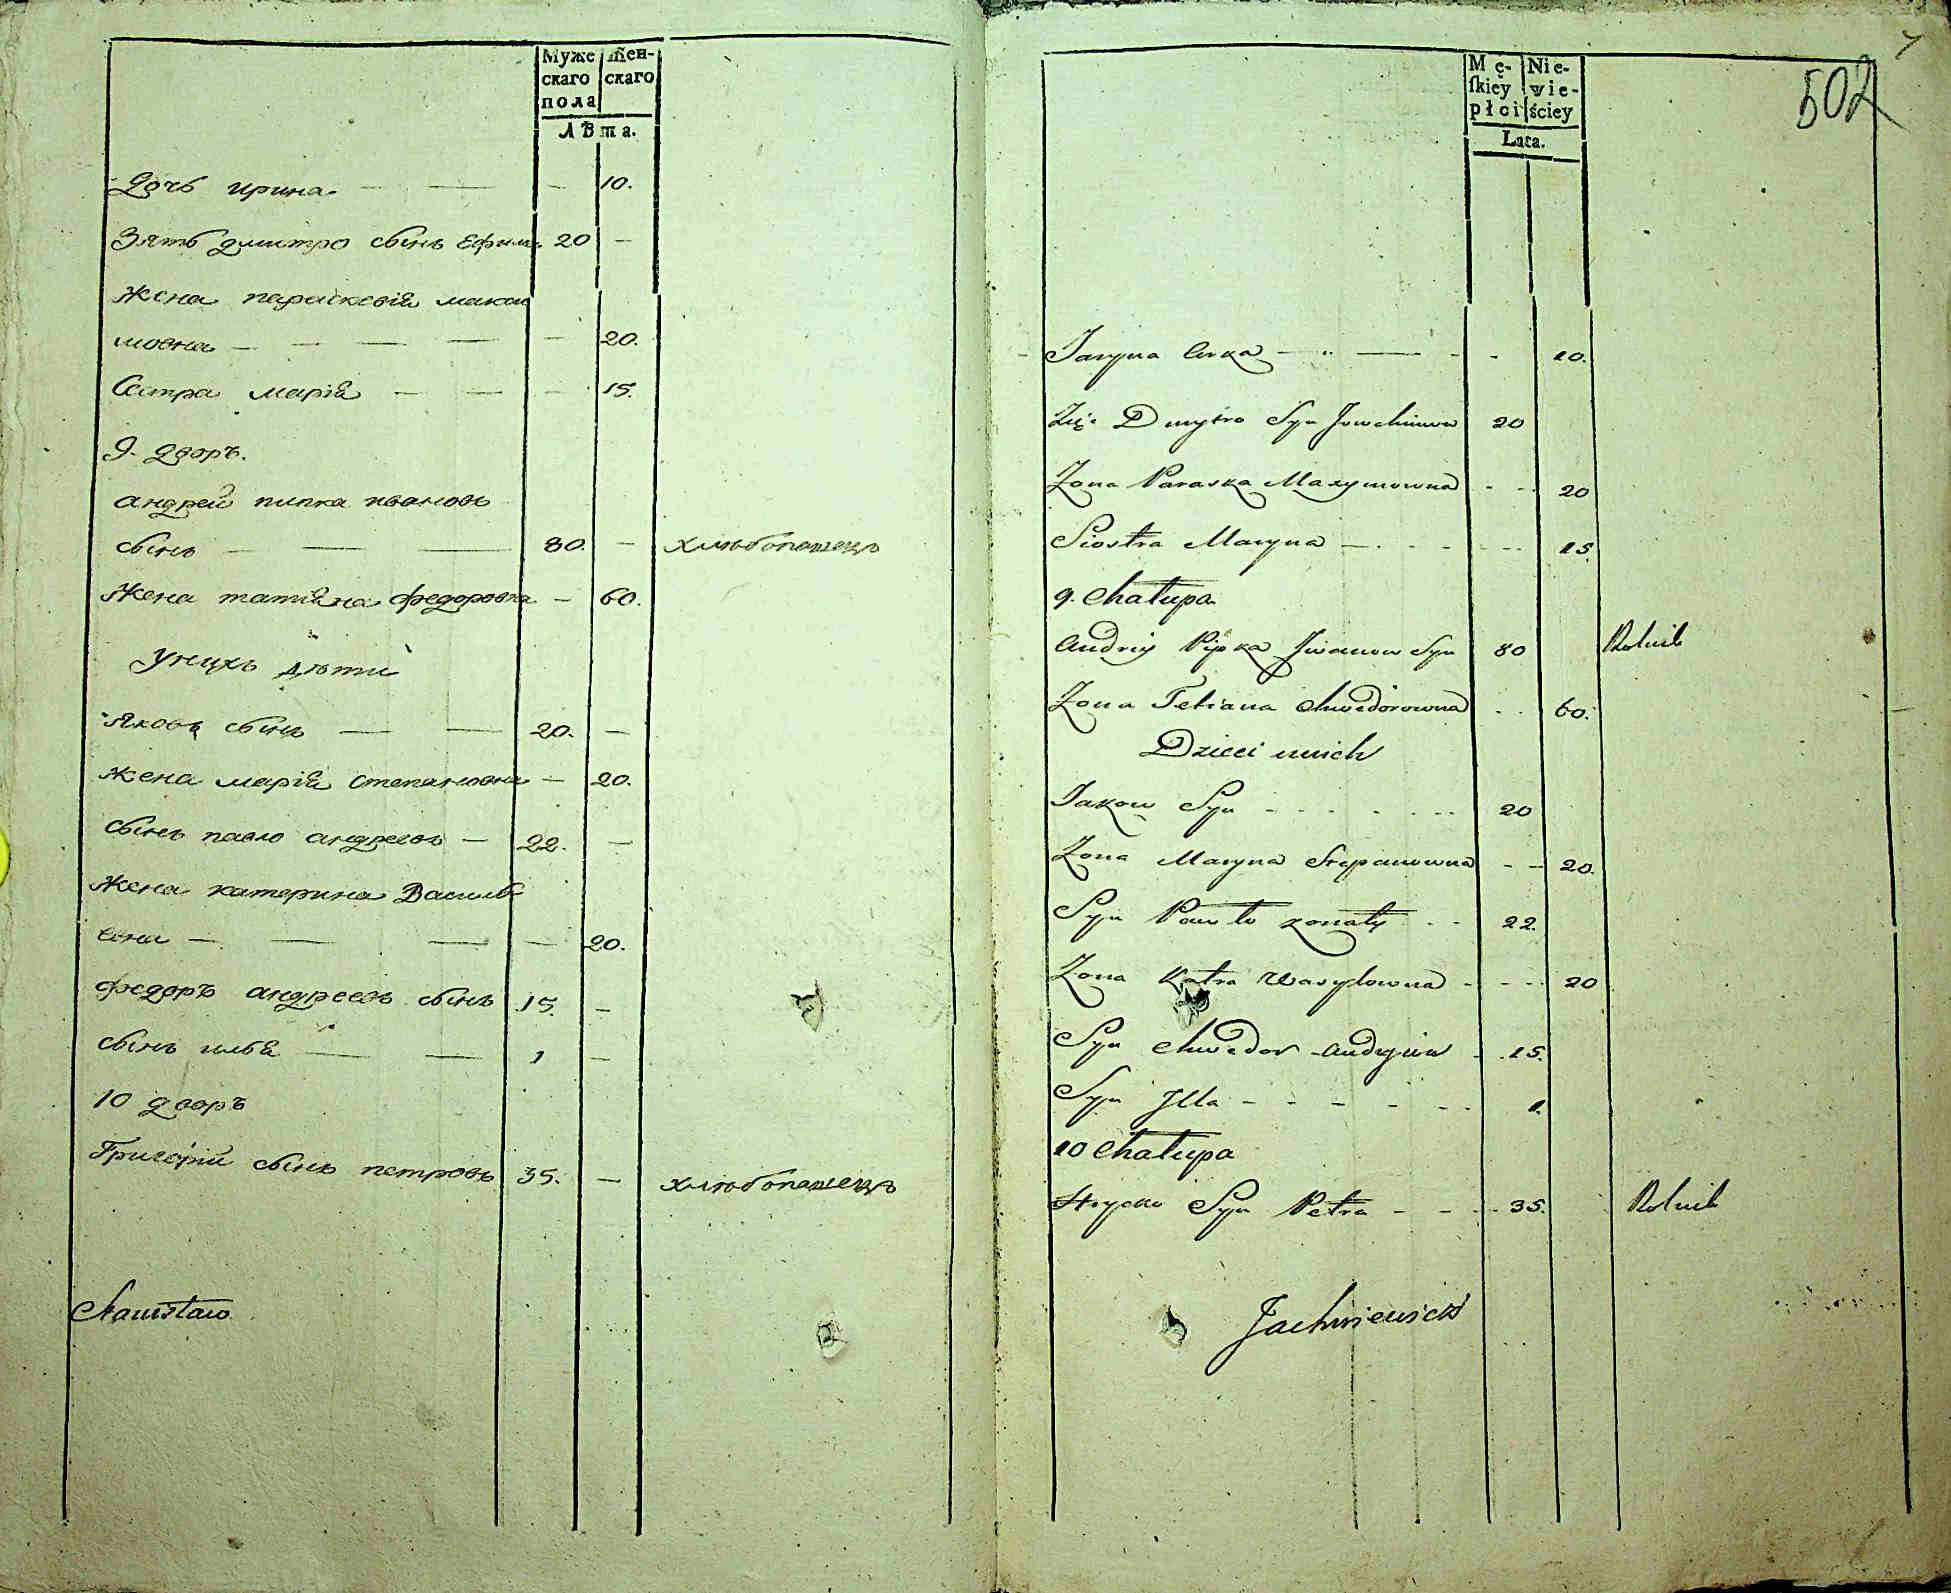 Муже
скаго
пола
Жен-
скаго
Лѣта.
Дочь ирина — — — 10.
Зять дмитро сынъ Ефим. 20 —
Жена параскевія макси
мовна — — — — — 20.
Сестра марія — — — 15.
9. дворъ.
андрей пипка ивановъ
сынъ — — — 80. — хлѣбопашецъ
Жена татіана федоровна — 60.
Унихъ дѣти
Яковъ сынъ — — 20. —
Жена марія степановна — 20.
сынъ павло андреевъ — 22. —
Жена катерина Василь
евна — — — — 20.
федоръ андреевъ сынъ 15. —
сынъ илья — — 1 —
10 дворъ
Григорій сынъ петровъ 35. — хлѣбопашецъ
Stanisław
7
502
Mę-
ſkiey
płci
Nie-
wie-
ściey
Lata.
Jaryna Curka — — - - 10.
Zięc Dmytro Syn Jowchimow 20
Zona Paraska Maxymowna - - 20
Siostra Maryna — - - - - 15
9. Chałupa
Andriy Pipka Jwanow Syn 80 Rolnik
Zona Tetiana Chwedorowna - - 60.
Dzieci unich
Jakow Syn - - - - - 20
Zona Maryna Stepanowna - - 20.
Syn Pawło zonaty - - 22.
Zona Katra Wasylowna - - - 20
Syn Chwedor Andryiow - 15.
Syn Jlla - - - - - - 1.
10 Chałupa
Hrycko Syn Petra - - - 35. Rolnik
Jachniewicz